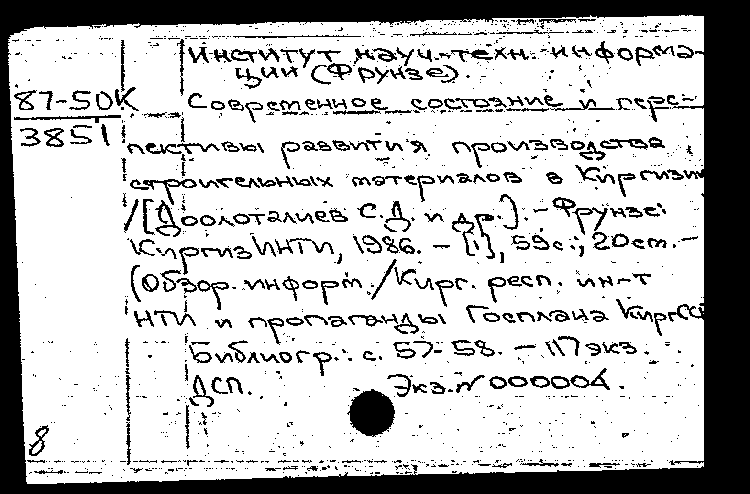 Институт науч.-техн. информа-
ции (Фрунзе).
87-50К
3851
Современное состояние и перс-
пективы развития производства
строительных материалов в Киргизии
/[Доолоталиев С.Д. и др.]. - Фрунзе:
КиргизИНТИ, 1986. - [1], 59 с.; 20 см. -
(Обзор. информ. / Кирг. респ. ин-т
НТИ и пропаганды Госплана КиргССР
Библиогр.: с. 57-58. - 117 экз.
ДСП. Экз. № 000004.
8